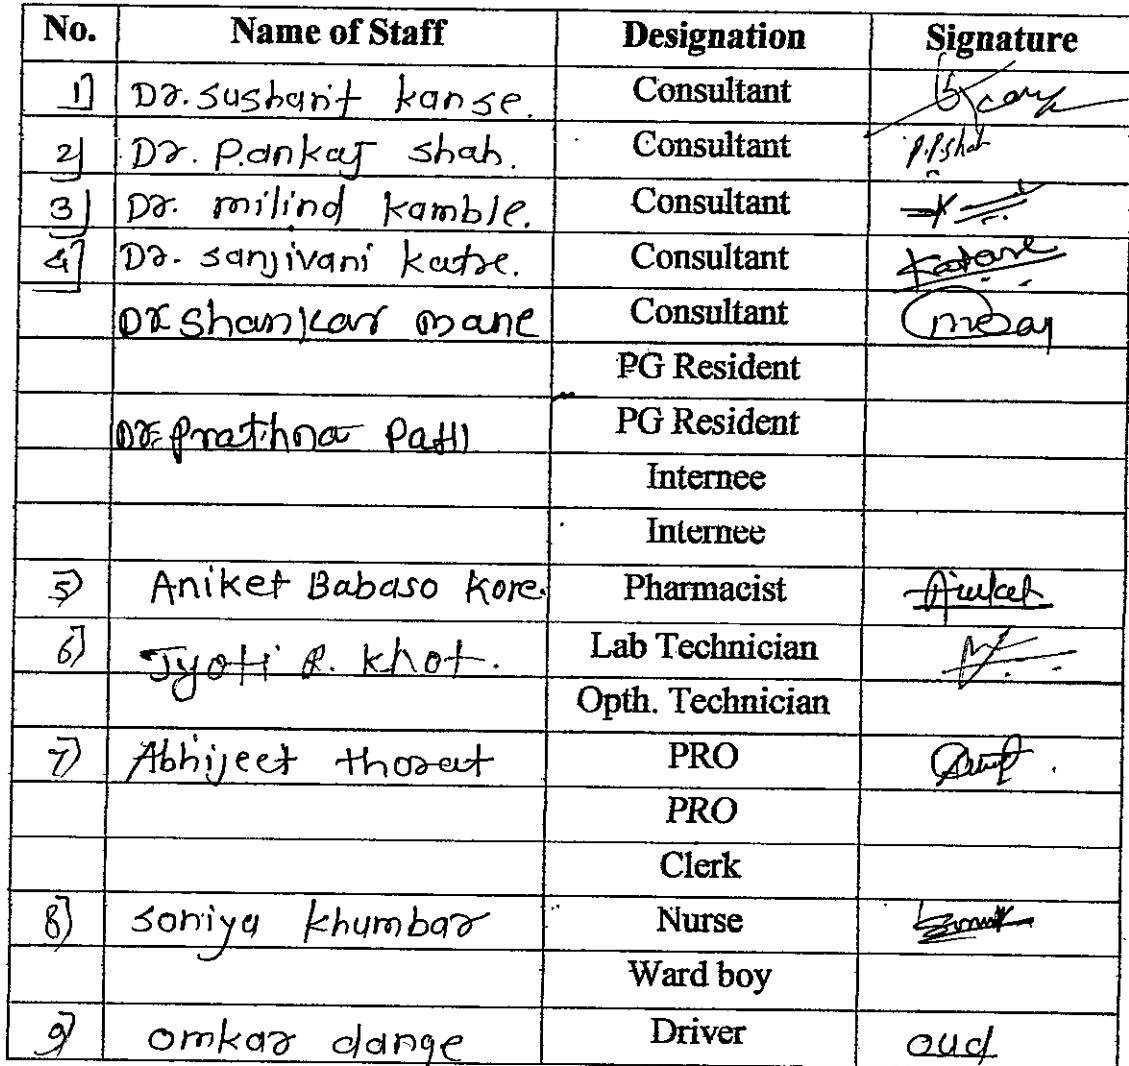 No. Name of Staff Designation Signature
1] Dr. Sushant kanse. Consultant
2] Dr. Pankaj shah. Consultant P.P.Shah
3] Dr. milind kamble. Consultant
4] Dr. sanjivani katre. Consultant Katare
Dr Shankar mane Consultant
PG Resident
Dr. Prathna Patil PG Resident
Internee
Internee
5) Aniket Babaso Kore. Pharmacist Aniket
6) Jyoti R. Khot. Lab Technician
Opth. Technician
7) Abhijeet thorat PRO
PRO
Clerk
8) soniya khumbar Nurse
Ward boy
9) omkar dange Driver oud